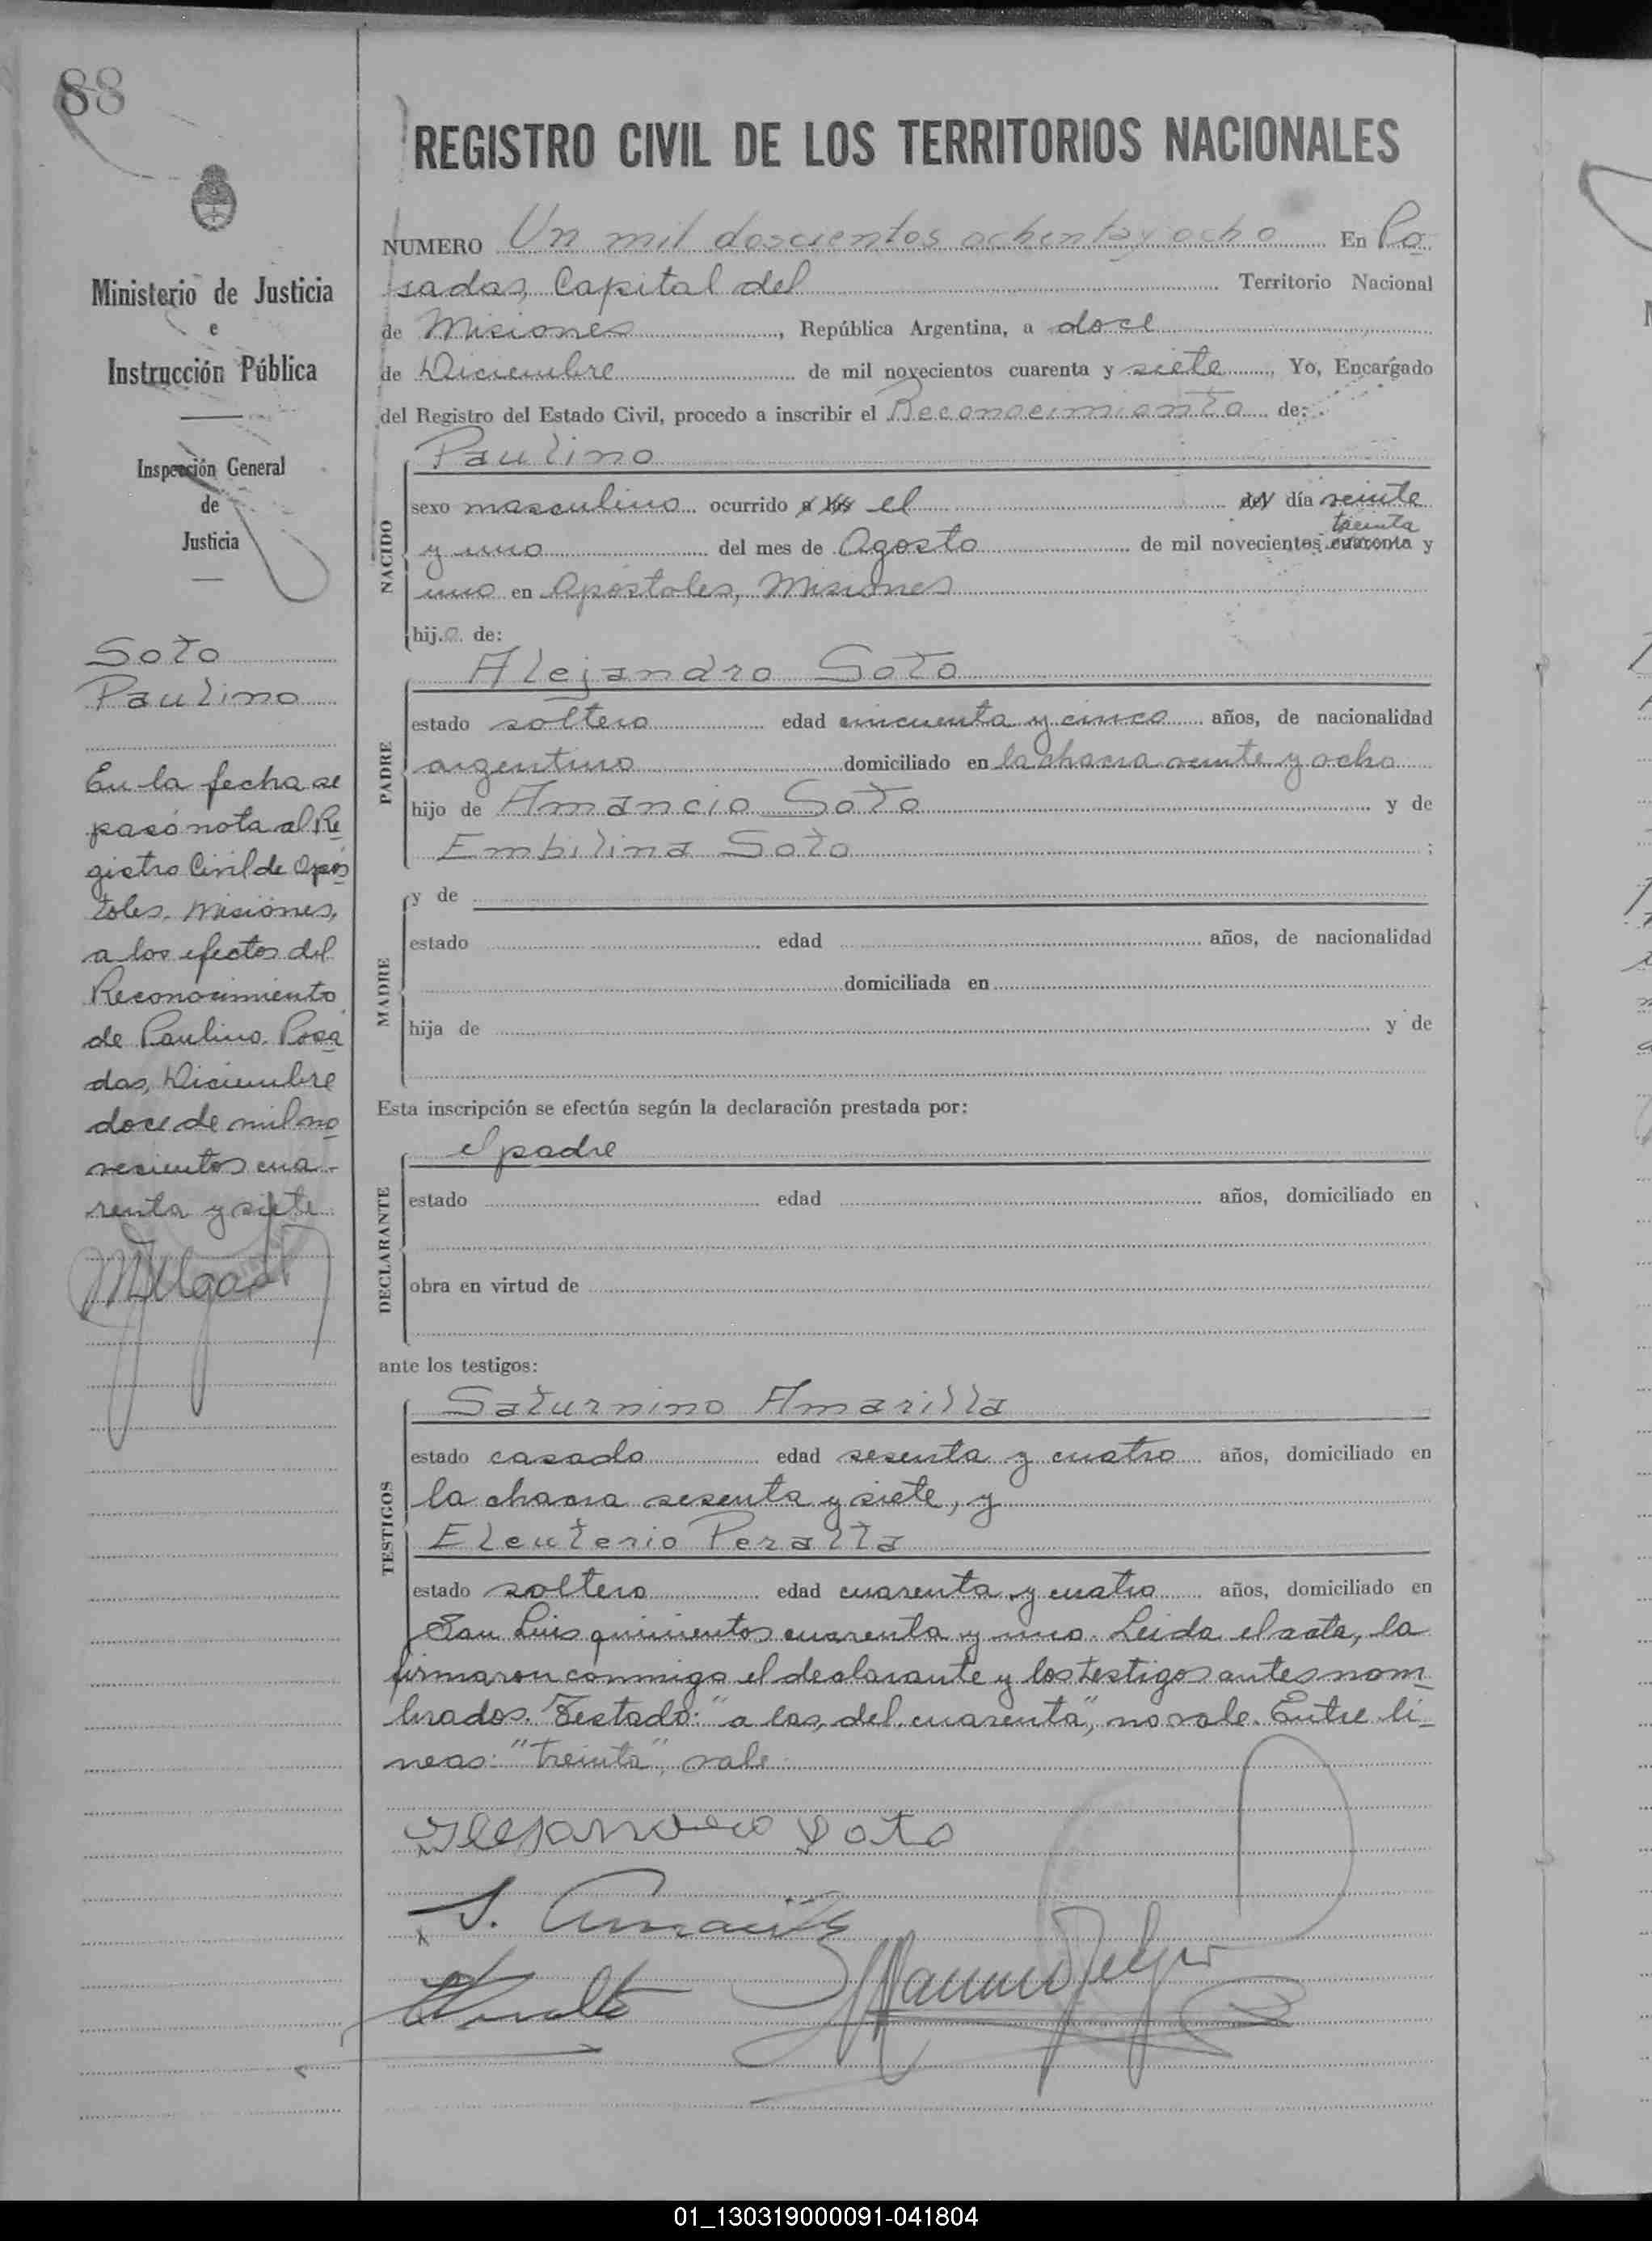 88
REGISTRO CIVIL DE LOS TERRITORIOS NACIONALES
NUMERO Un mil doscientos ochenta y ocho En Po
sadas, Capital del Territorio Nacional
de Misiones, República Argentina, a doce
de Diciembre de mil novecientos cuarenta y siete, Yo, Encargado
del Registro del Estado Civil, procedo a inscribir el Reconocimiento de:
NACIDO
Paulino
sexo masculino ocurrido a las el del día veinte
treinta
y uno del mes de Agosto de mil novecientos cuarenta y
uno en Apóstoles, Misiones
hijo de:
PADRE
Alejandro Soto
estado soltero edad cincuenta y cinco años, de nacionalidad
argentino domiciliado en la chacra veinte y ocho
hijo de Amancio Soto y de
Embilina Soto;
MADRE
y de
estado edad años, de nacionalidad
domiciliada en
hija de y de
Esta inscripción se efectúa según la declaración prestada por:
DECLARANTE
el padre
estado edad años, domiciliado en
obra en virtud de
ante los testigos:
TESTIGOS
Saturnino Amarilla
estado casado edad sesenta y cuatro años, domiciliado en
la chacra sesenta y siete, y
Eleuterio Peralta
estado soltero edad cuarenta y cuatro años, domiciliado en
San Luis quinientos cuarenta y uno. Leida el acta, la
firmaron conmigo el declarante y los testigos antes nom
brados. Testado: "a las, del cuarenta", no vale. Entre lí-
neas: "treinta", vale.
Alejandro Soto
S. Amarilla
Ministerio de Justicia
e
Instrucción Pública
Inspección General
de
Justicia
Soto
Paulino
En la fecha se
pasó nota al Re
gistro Civil de Após
toles, Misiones,
a los efectos del
Reconocimiento
de Paulino. Posa
das, Diciembre
doce de mil no
vecientos cua-
renta y siete
01_130319000091-041804